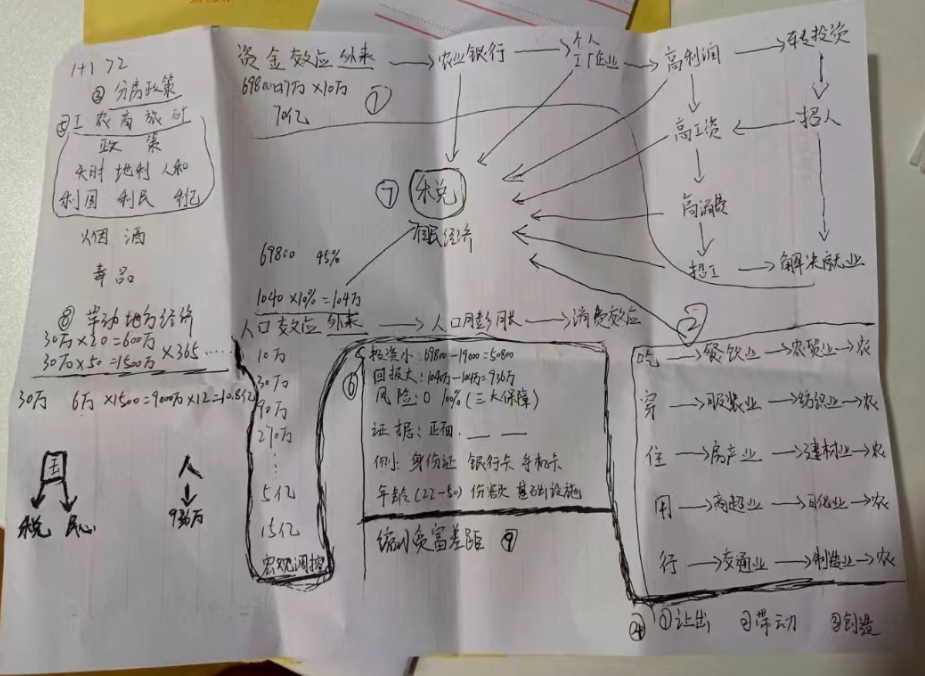 1+1>2
③ 分房政策
⑤ 工 农 商 旅 行
政 策
天时 地利 人和
利国 利民 利己
烟 酒
毒品
⑧ 带动地方经济
30万×20=600万
30万×50=1500万 ×365 ……
30万 6万×1500=9000万×12=10.8亿
国
税 民心
人
936万
资金效应 外来 → 农业银行 → 个人 工厂企业 → 高利润 → 转投资
69800≈7万×10万
70亿
①
招人
高工资
高消费
招工 → 解决就业
⑦ 税
国民经济
69800 45%
1040×10%=104万
人口效应 外来 → 人口膨胀 → 消费效应
②
10万
30万
90万
270万
⋮
5亿
15亿
宏观调控
⑥ 投资小:69800-19000=50800
回报大:1040万-104万=936万
风险:0 100%(三大保障)
证据:正面. — —
例小 身份证 银行卡 手机卡
年龄(22-50) 份额 基础设施
缩小贫富差距 ⑨
吃 → 餐饮业 → 农贸业 → 农
穿 → 服装业 → 纺织业 → 农
住 → 房产业 → 建材业 → 农
用 → 商超业 → 日化业 → 农
行 → 交通业 → 制造业 → 农
④ ①让出 ②带动 ③创造